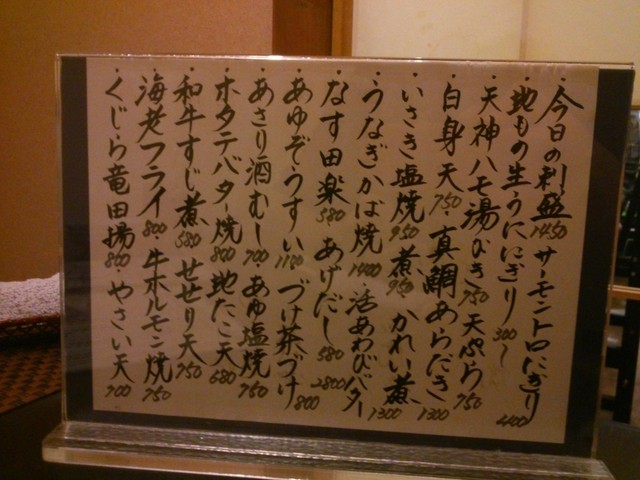 ・今日の刺盛 1450 サーモントロにぎり 400
・地もの生うににぎり 300〜
・天神ハモ湯びき 750 天ぷら 750
・白身天 750・真鯛あらだき 1300
・いさき塩焼 950 煮 950 かれい煮 1300
・うなぎかば焼 1400・活あわびバター 2800
・なす田楽 580 あげだし 580
・あゆぞうすい 1150 づけ茶づけ 800
・あさり酒むし 700 あゆ塩焼 750
・ホタテバター焼 800 地たこ天 680
・和牛すじ煮 580 せせり天 750
・海老フライ 800・牛ホルモン焼 750
・くじら竜田揚 860・やさい天 700